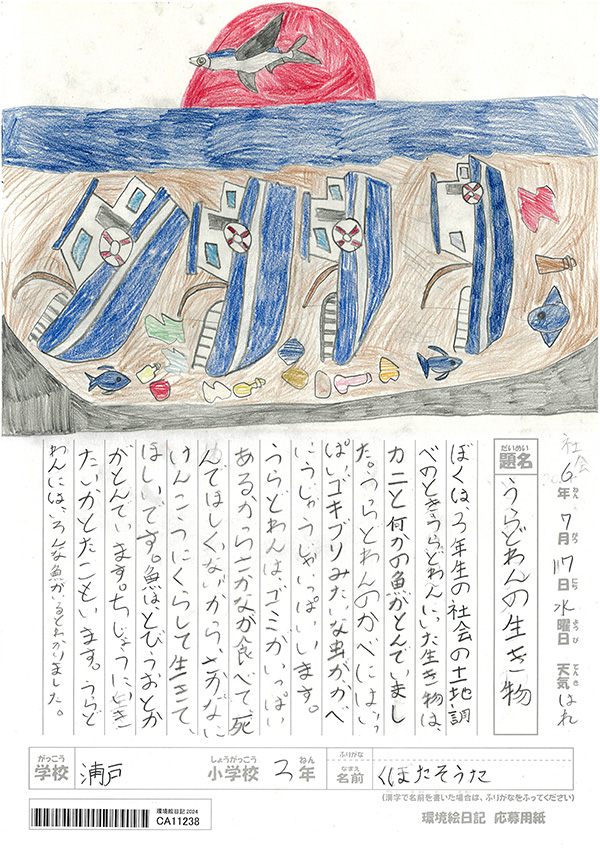 社会
6年 7月 17日 水曜日 天気 はれ
ねん がつ にち ようび てんき
だいめい
題名 うらどわんの生き物
ぼくは、3年生の社会の土地調
べのときうらどわんにいた生き物は、
カニと何かの魚がとんでいまし
た。うらどわんのかべにはいっ
ぱいゴキブリみたいな虫がかべ
にうじゃうじゃいっぱいいます。
うらどわんは、ゴミがいっぱい
あるからさかなが食べて死
んでほしくないから、さかなに
けんこうにくらして生きて、
ほしいです。魚は、とびうおとか
がとんでいます。
たいかとたこもいます。うらど
わんには、いろんな魚が、いるとわかりました。
がっこう しょうがっこう ねん
学校 浦戸 小学校 3年
ふりがな
なまえ
名前 くぼたそうた
(漢字で名前を書いた場合は、ふりがなをふってください)
環境絵日記 2024
CA11238
環境絵日記 応募用紙